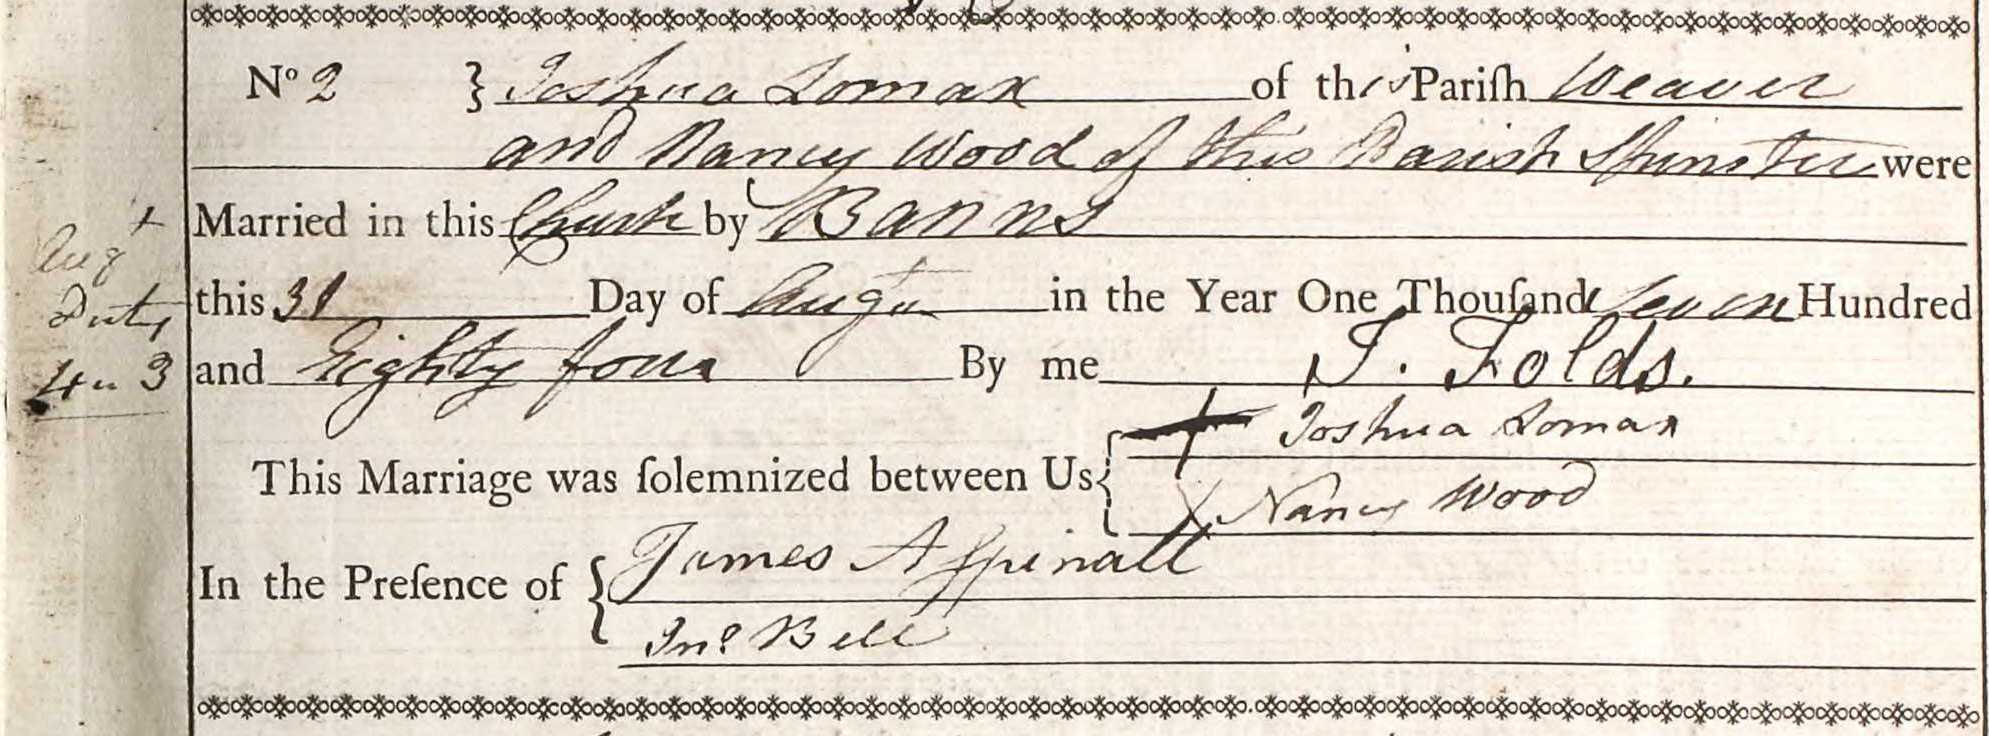 No 2 } Joshua Lomax of this Pariſh Weaver
and Nancy Wood of this Parish Spinster were
Married in this Church by Banns
this 31 Day of Augt in the Year One Thouſand Seven Hundred
and Eighty four By me J. Folds.
This Marriage was ſolemnized between Us { + Joshua Lomax
X Nancy Wood
In the Preſence of { James Aspinall
Jno Bell
Augt
Duty
4 " 3